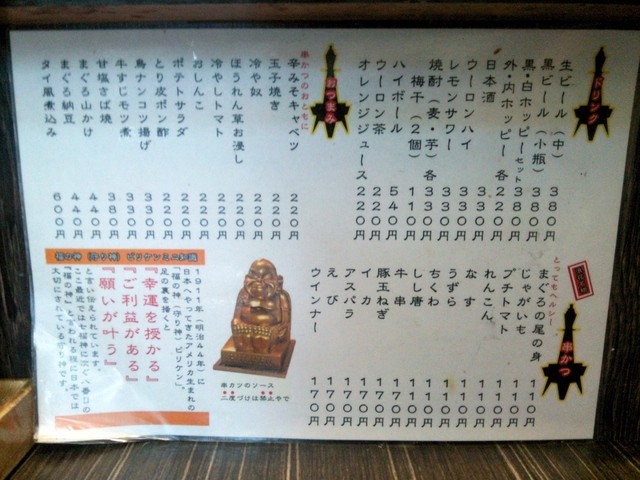 ドリンク
生ビール(中) 380円
黒ビール(小瓶) 380円
黒・白ホッピーセット 380円
外・内ホッピー 各220円
日本酒 330円
ウーロンハイ 330円
レモンサワー 330円
焼酎(麦・芋)各330円
梅干(2個) 110円
ハイボール 540円
ウーロン茶 220円
オレンジジュース 220円
串かつのおともに
おつまみ
辛みそキャベツ 220円
玉子焼き 220円
冷や奴 220円
ほうれん草お浸し 220円
冷やしトマト 220円
おしんこ 220円
ポテトサラダ 220円
とり皮ポン酢 220円
鳥ナンコツ揚げ 330円
牛すじモツ煮 330円
甘塩さば焼 380円
まぐろ山かけ 440円
まぐろ納豆 440円
タイ風煮込み 600円
とってもヘルシー
串かつ
まぐろの尾の身 110円
じゃがいも 110円
プチトマト 110円
れんこん 110円
なす 110円
うずら 110円
ちくわ 110円
しし唐 110円
牛串 110円
豚玉ねぎ 170円
イカ 170円
アスパラ 170円
えび 170円
ウインナー 170円
串カツのソース
二度づけは禁止やで
福の神(守り神)ビリケンミニ知識
1911年(明治44年)に
日本へやってきたアメリカ生まれの
「福の神(守り神)ビリケン」。
足の裏を掻くと
『幸運を授かる』
『ご利益がある』
『願いが叶う』
と言い伝えられています。
ここ最近では七福神に次ぐ八番目の
「福の神」と言われる程に日本では
大切にされている守り神です。